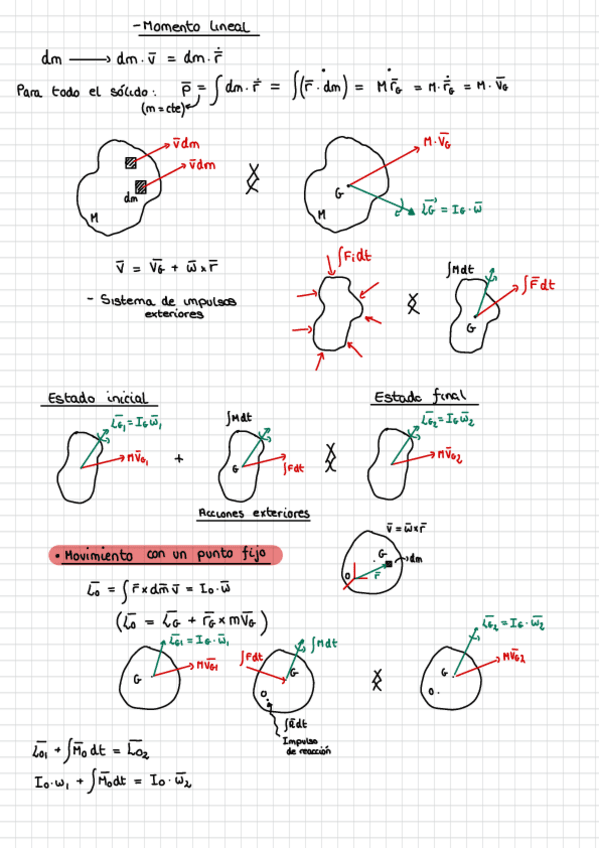 - Momento lineal
dm ⟶ dm · v̄ = dm · ṙ̄
Para todo el sólido: P̄ = ∫ dm · ṙ̄ = ∫(r̄ · dm)˙ = M r̄G˙ = M · ṙ̄G = M · V̄G
(m = cte)
v̄dm
v̄dm
dm
M
M · V̄G
G
L̄G = IG · ω̄
M
V̄ = V̄G + ω̄ x r̄
- Sistema de impulsos
exteriores
∫Fi dt
∫Mdt
∫F̄dt
G
Estado inicial
Estado final
L̄G1 = IG ω̄1
MV̄G1
+
∫Mdt
G
∫Fdt
L̄G2 = IG ω̄2
MV̄G2
Acciones exteriores
• Movimiento con un punto fijo
v̄ = ω̄ x r̄
G
dm
O
r̄
L̄O = ∫ r̄ x dm v̄ = IO · ω̄
(L̄O = L̄G + r̄G x mV̄G)
L̄G1 = IG · ω̄1
MV̄G1
G
∫Fdt
∫Mdt
G
O
∫R̄dt
Impulso
de reacción
L̄G2 = IG · ω̄2
MV̄G2
G
O
L̄O1 + ∫M̄O dt = L̄O2
IO · ω1 + ∫M̄O dt = IO · ω̄2